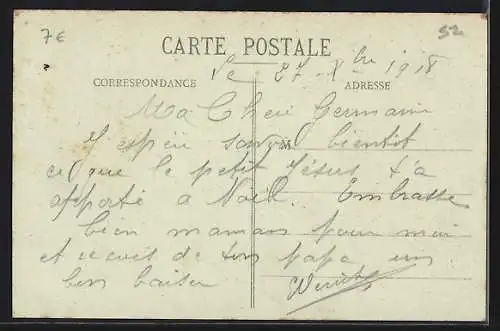 7€
52
CARTE POSTALE
Le 27 Xbre 1918
CORRESPONDANCE
ADRESSE
Ma Cheri Germain
J'espèr savoir bientot
M
ce que le petit Jésus t'a
apporté a Noël. Embrasse
bien maman pour moi
et recoit de ton papa un
bon baiser